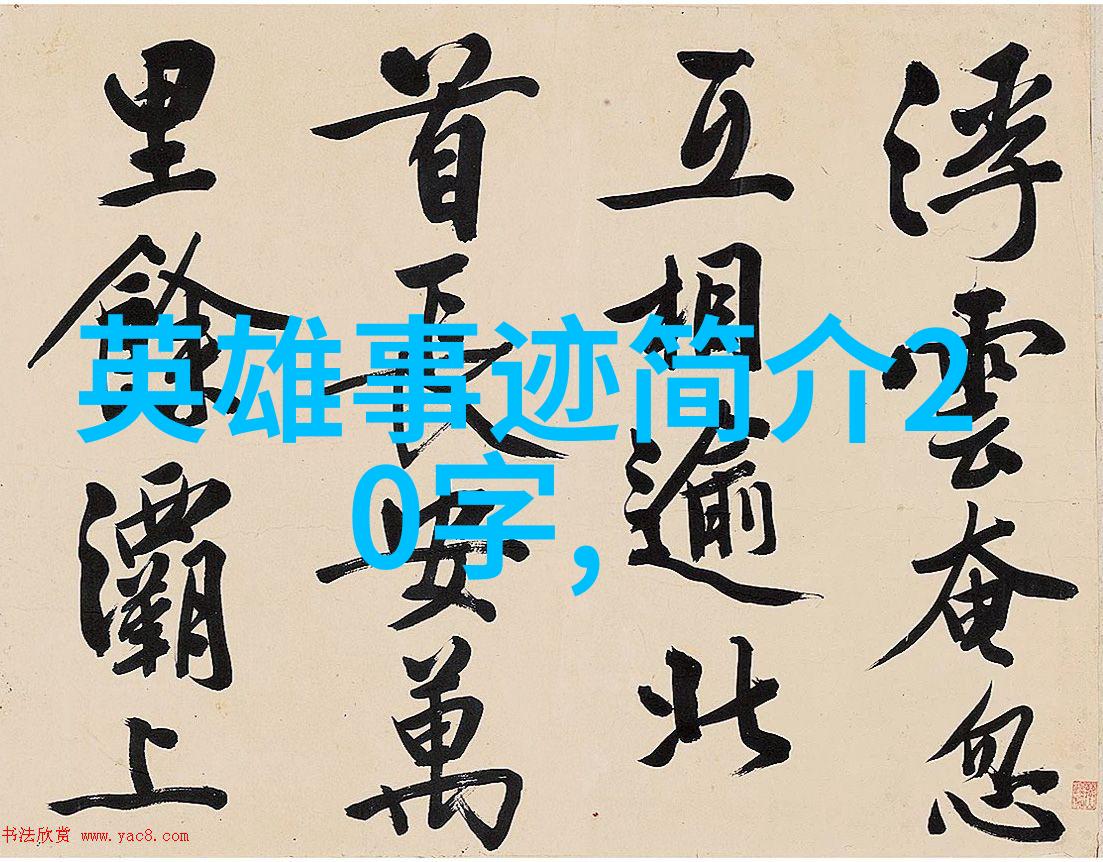 浮雲奄忽
互相逾北
首長安萬
里餘灞上
英雄事迹简介2
0字,
书法欣赏 www.yac8.com